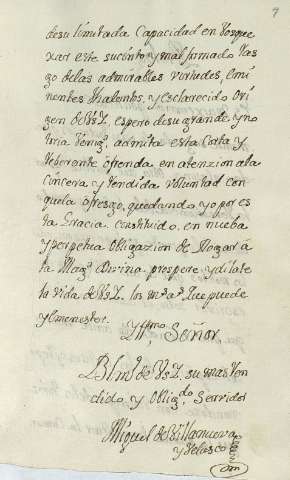 9
desu limitada Capacidad en Vosque
xar este sucinto, y mal formado Ras
go delas admirables virtudes, emi
nentes thalentos, y esclarecido Ori
gen de VsI. espero desu grande, y no
toria Venigd. admita esta Corta y
Reberante ofrenda en atenzion ala
cincera y Rendida voluntad con
quela ofresgo, quedando yo por es
ta Gracia constituido, en nueba
y perpetua obligazion de Rogar à
la Magd. Divina prospere y dilate
la vida de VsI. los ms. as. que puede
y emenester.
Yllmo. Señor.
BlM. de VsI. su mas Ren
dido, y Obligdo. Servidor
Miguel de Villanueva
y Velasco